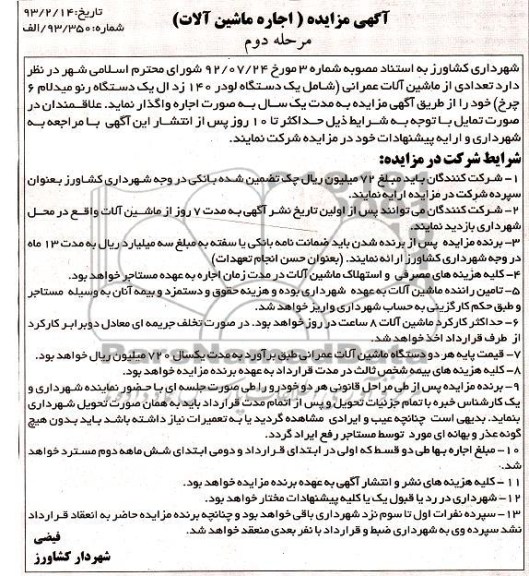 تاریخ: ۹۳/۲/۱۴
شماره: ۹۳/۳۵۰/الف
آگهی مزایده (اجاره ماشین آلات)
مرحله دوم
شهرداری کشاورز به استناد مصوبه شماره ۳ مورخ ۹۲/۰۷/۲۴ شورای محترم اسلامی شهر در نظر
دارد تعدادی از ماشین آلات عمرانی (شامل یک دستگاه لودر ۱۴۰ زد ال یک دستگاه رنو میدلام ۶
چرخ) خود را از طریق آگهی مزایده به مدت یک سال به صورت اجاره واگذار نماید. علاقمندان در
صورت تمایل با توجه به شرایط ذیل حداکثر تا ۱۰ روز پس از انتشار این آگهی با مراجعه به
شهرداری و ارایه پیشنهادات خود در مزایده شرکت نمایند.
شرایط شرکت در مزایده:
۱- شرکت کنندگان باید مبلغ ۷۲ میلیون ریال چک تضمین شده بانکی در وجه شهرداری کشاورز بعنوان
سپرده شرکت در مزایده ارایه نمایند.
۲- شرکت کنندگان می توانند پس از اولین تاریخ نشر آگهی به مدت ۷ روز از ماشین آلات واقع در محل
شهرداری بازدید نمایند.
۳- برنده مزایده پس از برنده شدن باید ضمانت نامه بانکی یا سفته به مبلغ سه میلیارد ریال به مدت ۱۳ ماه
در وجه شهرداری کشاورز ارائه نمایند. (بعنوان حسن انجام تعهدات)
۴- کلیه هزینه های مصرفی و استهلاک ماشین آلات در مدت زمان اجاره به عهده مستاجر خواهد بود.
۵- تامین راننده ماشین آلات به عهده شهرداری بوده و هزینه حقوق و دستمزد و بیمه آنان به وسیله مستاجر
و طبق حکم کارگزینی به حساب شهرداری واریز خواهد شد.
۶- حداکثر کارکرد ماشین آلات ۸ ساعت در روز خواهد بود. در صورت تخلف جریمه ای معادل دوبرابر کارکرد
از طرف قرارداد اخذ خواهد شد.
۷- قیمت پایه هر دو دستگاه ماشین آلات عمرانی طبق برآورد به مدت یکسال ۷۲۰ میلیون ریال خواهد بود.
۸- کلیه هزینه های بیمه شخص ثالث در مدت قرارداد به عهده برنده مزایده خواهد بود.
۹- برنده مزایده پس از طی مراحل قانونی هر دو خودرو را طی صورت جلسه ای با حضور نماینده شهرداری و
یک کارشناس خبره با تمام جزئیات تحویل و پس از اتمام مدت قرارداد باید به همان صورت تحویل شهرداری
بنماید. بدیهی است چنانچه عیب و ایرادی مشاهده گردید یا به تعمیرات نیاز داشته باشد باید بدون هیچ
گونه عذر و بهانه ای مورد توسط مستاجر رفع ایراد گردد.
۱۰- مبلغ اجاره بها طی دو قسط که اولی در ابتدای قرارداد و دومی ابتدای شش ماهه دوم مسترد خواهد
شد.
۱۱- کلیه هزینه های نشر و انتشار آگهی به عهده برنده مزایده خواهد بود.
۱۲- شهرداری در رد یا قبول یک یا کلیه پیشنهادات مختار خواهد بود.
۱۳- سپرده نفرات اول تا سوم نزد شهرداری باقی خواهد بود و چنانچه برنده مزایده حاضر به انعقاد قرارداد
نشد سپرده وی به شهرداری ضبط و قرارداد با نفر بعدی منعقد خواهد شد.
فیضی
شهردار کشاورز